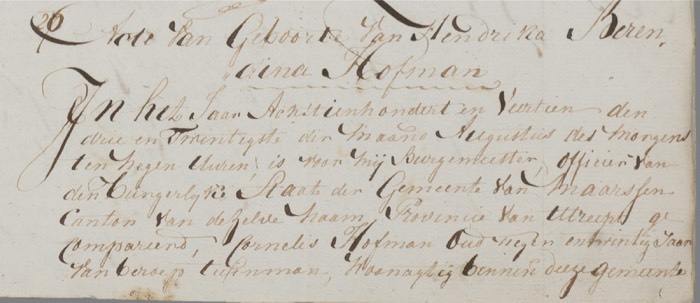 26 Acte Van Geboorte Van Hendrika Beren,
dina Hofman
In het Jaar Achtienhondert en Veertien den
drie en Twentigste der maand Augustus des morgens
ten negen Uuren, is voor mij Burgemeester, officier van
den burgerlyke Staat der Gemeente Van Maarssen
Canton Van dezelve naam, Provincie Van Utrecht ge
compareerd, Cornelis Hofman Oud negen entwintig Jaar
Van beroep tuinman, Woonagtig binnen deeze gemeente